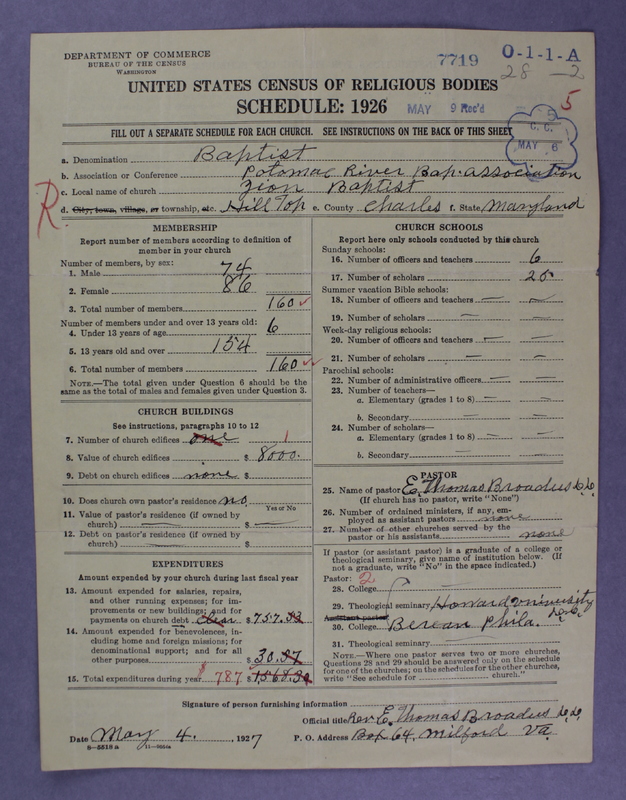 DEPARTMENT OF COMMERCE
BUREAU OF THE CENSUS
WASHINGTON
7719 O-1-1-A
28-2
UNITED STATES CENSUS OF RELIGIOUS BODIES
SCHEDULE: 1926
MAY 9 Rec'd
5
C. C.
MAY 6
FILL OUT A SEPARATE SCHEDULE FOR EACH CHURCH. SEE INSTRUCTIONS ON THE BACK OF THIS SHEET
a. Denomination Baptist
b. Association or Conference Potomac River Bap. association
c. Local name of church Zion Baptist
R
d. City, town, village, or township, etc. Hill Top e. County Charles f. State Maryland
MEMBERSHIP
Report number of members according to definition of
member in your church
Number of members, by sex:
1. Male 74
2. Female 86
3. Total number of members 160
Number of members under and over 13 years old:
4. Under 13 years of age 6
5. 13 years old and over 154
6. Total number of members 160
NOTE.—The total given under Question 6 should be the
same as the total of males and females given under Question 3.
CHURCH BUILDINGS
See instructions, paragraphs 10 to 12
7. Number of church edifices one 1
8. Value of church edifices $ 8000.
9. Debt on church edifices none $
10. Does church own pastor's residence no.
Yes or No
11. Value of pastor's residence (if owned by
church) $
12. Debt on pastor's residence (if owned by
church) $
EXPENDITURES
Amount expended by your church during last fiscal year
13. Amount expended for salaries, repairs,
and other running expenses; for im-
provements or new buildings; and for
payments on church debt clear $ 757.53
14. Amount expended for benevolences, in-
cluding home and foreign missions; for
denominational support; and for all
other purposes $ 30.37
15. Total expenditures during year $ 787 $
CHURCH SCHOOLS
Report here only schools conducted by this church
Sunday schools:
16. Number of officers and teachers 6
17. Number of scholars 25
Summer vacation Bible schools:
18. Number of officers and teachers
19. Number of scholars
Week-day religious schools:
20. Number of officers and teachers
21. Number of scholars
Parochial schools:
22. Number of administrative officers
23. Number of teachers—
a. Elementary (grades 1 to 8)
b. Secondary
24. Number of scholars—
a. Elementary (grades 1 to 8)
b. Secondary
PASTOR
25. Name of pastor E. Thomas Broadus D.D.
(If church has no pastor, write "None")
26. Number of ordained ministers, if any, em-
ployed as assistant pastors none
27. Number of other churches served by the
pastor or his assistants none
If pastor (or assistant pastor) is a graduate of a college or
theological seminary, give name of institution below. (If
not a graduate, write "No" in the space indicated.)
Pastor: 2
28. College
29. Theological seminary Howard University
D.C.
Assistant pastor:
30. College Berean Phila.
31. Theological seminary
NOTE.—Where one pastor serves two or more churches,
Questions 28 and 29 should be answered only on the schedule
for one of the churches; on the schedules for the other churches,
write "See schedule for church."
Signature of person furnishing information
Official title Rev. E. Thomas Broadus D.D.
Date May 4, 1927 P. O. Address Box 64, Milford Va.
8—5518 a